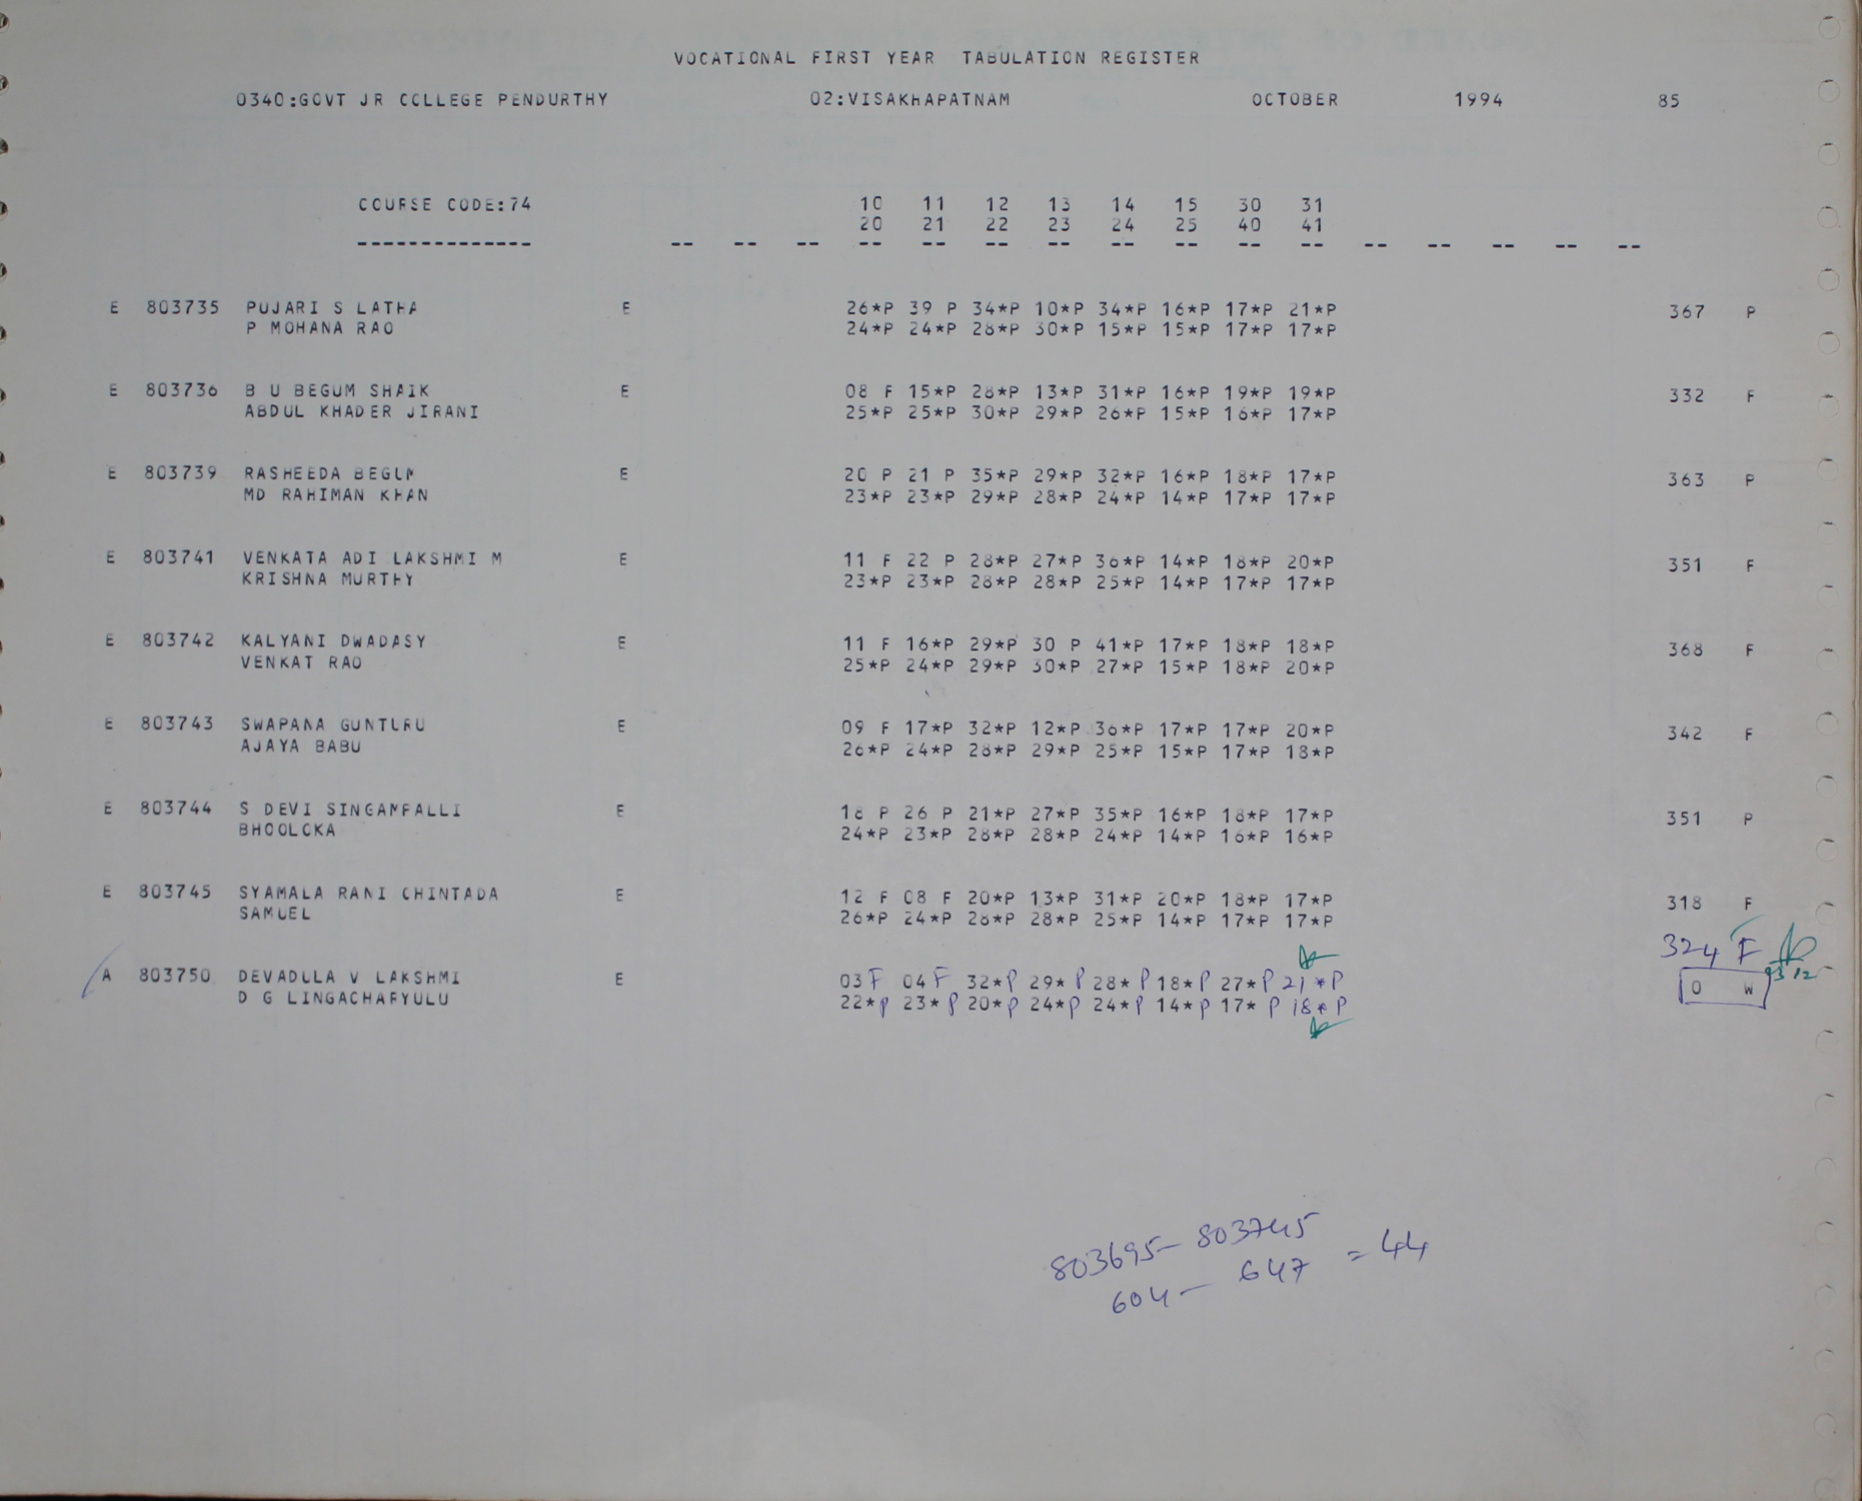 VOCATIONAL FIRST YEAR TABULATION REGISTER
0340:GOVT JR COLLEGE PENDURTHY 02:VISAKHAPATNAM OCTOBER 1994 85
COURSE CODE:74 10 11 12 13 14 15 30 31
20 21 22 23 24 25 40 41
-------------- -- -- -- -- -- -- -- -- -- -- -- -- -- -- -- --
E 803735 PUJARI S LATHA E 26*P 39 P 34*P 10*P 34*P 16*P 17*P 21*P 367 P
P MOHANA RAO 24*P 24*P 28*P 30*P 15*P 15*P 17*P 17*P
E 803736 B U BEGUM SHAIK E 08 F 15*P 28*P 13*P 31*P 16*P 19*P 19*P 332 F
ABDUL KHADER JIRANI 25*P 25*P 30*P 29*P 26*P 15*P 16*P 17*P
E 803739 RASHEEDA BEGUM E 20 P 21 P 35*P 29*P 32*P 16*P 18*P 17*P 363 P
MD RAHIMAN KHAN 23*P 23*P 29*P 28*P 24*P 14*P 17*P 17*P
E 803741 VENKATA ADI LAKSHMI M E 11 F 22 P 28*P 27*P 36*P 14*P 18*P 20*P 351 F
KRISHNA MURTHY 23*P 23*P 28*P 28*P 25*P 14*P 17*P 17*P
E 803742 KALYANI DWADASY E 11 F 16*P 29*P 30 P 41*P 17*P 18*P 18*P 368 F
VENKAT RAO 25*P 24*P 29*P 30*P 27*P 15*P 18*P 20*P
E 803743 SWAPANA GUNTURU E 09 F 17*P 32*P 12*P 36*P 17*P 17*P 20*P 342 F
AJAYA BABU 26*P 24*P 28*P 29*P 25*P 15*P 17*P 18*P
E 803744 S DEVI SINGAMPALLI E 18 P 26 P 21*P 27*P 35*P 16*P 18*P 17*P 351 P
BHOOLOKA 24*P 23*P 28*P 28*P 24*P 14*P 16*P 16*P
E 803745 SYAMALA RANI CHINTADA E 12 F 08 F 20*P 13*P 31*P 20*P 18*P 17*P 318 F
SAMUEL 26*P 24*P 28*P 28*P 25*P 14*P 17*P 17*P
324 F
A 803750 DEVADULA V LAKSHMI E 03 F 04 F 32*P 29*P 28*P 18*P 27*P 21*P 0 W
D G LINGACHARYULU 22*P 23*P 20*P 24*P 24*P 14*P 17*P 18*P
803695 - 803745
604 - 647 = 44